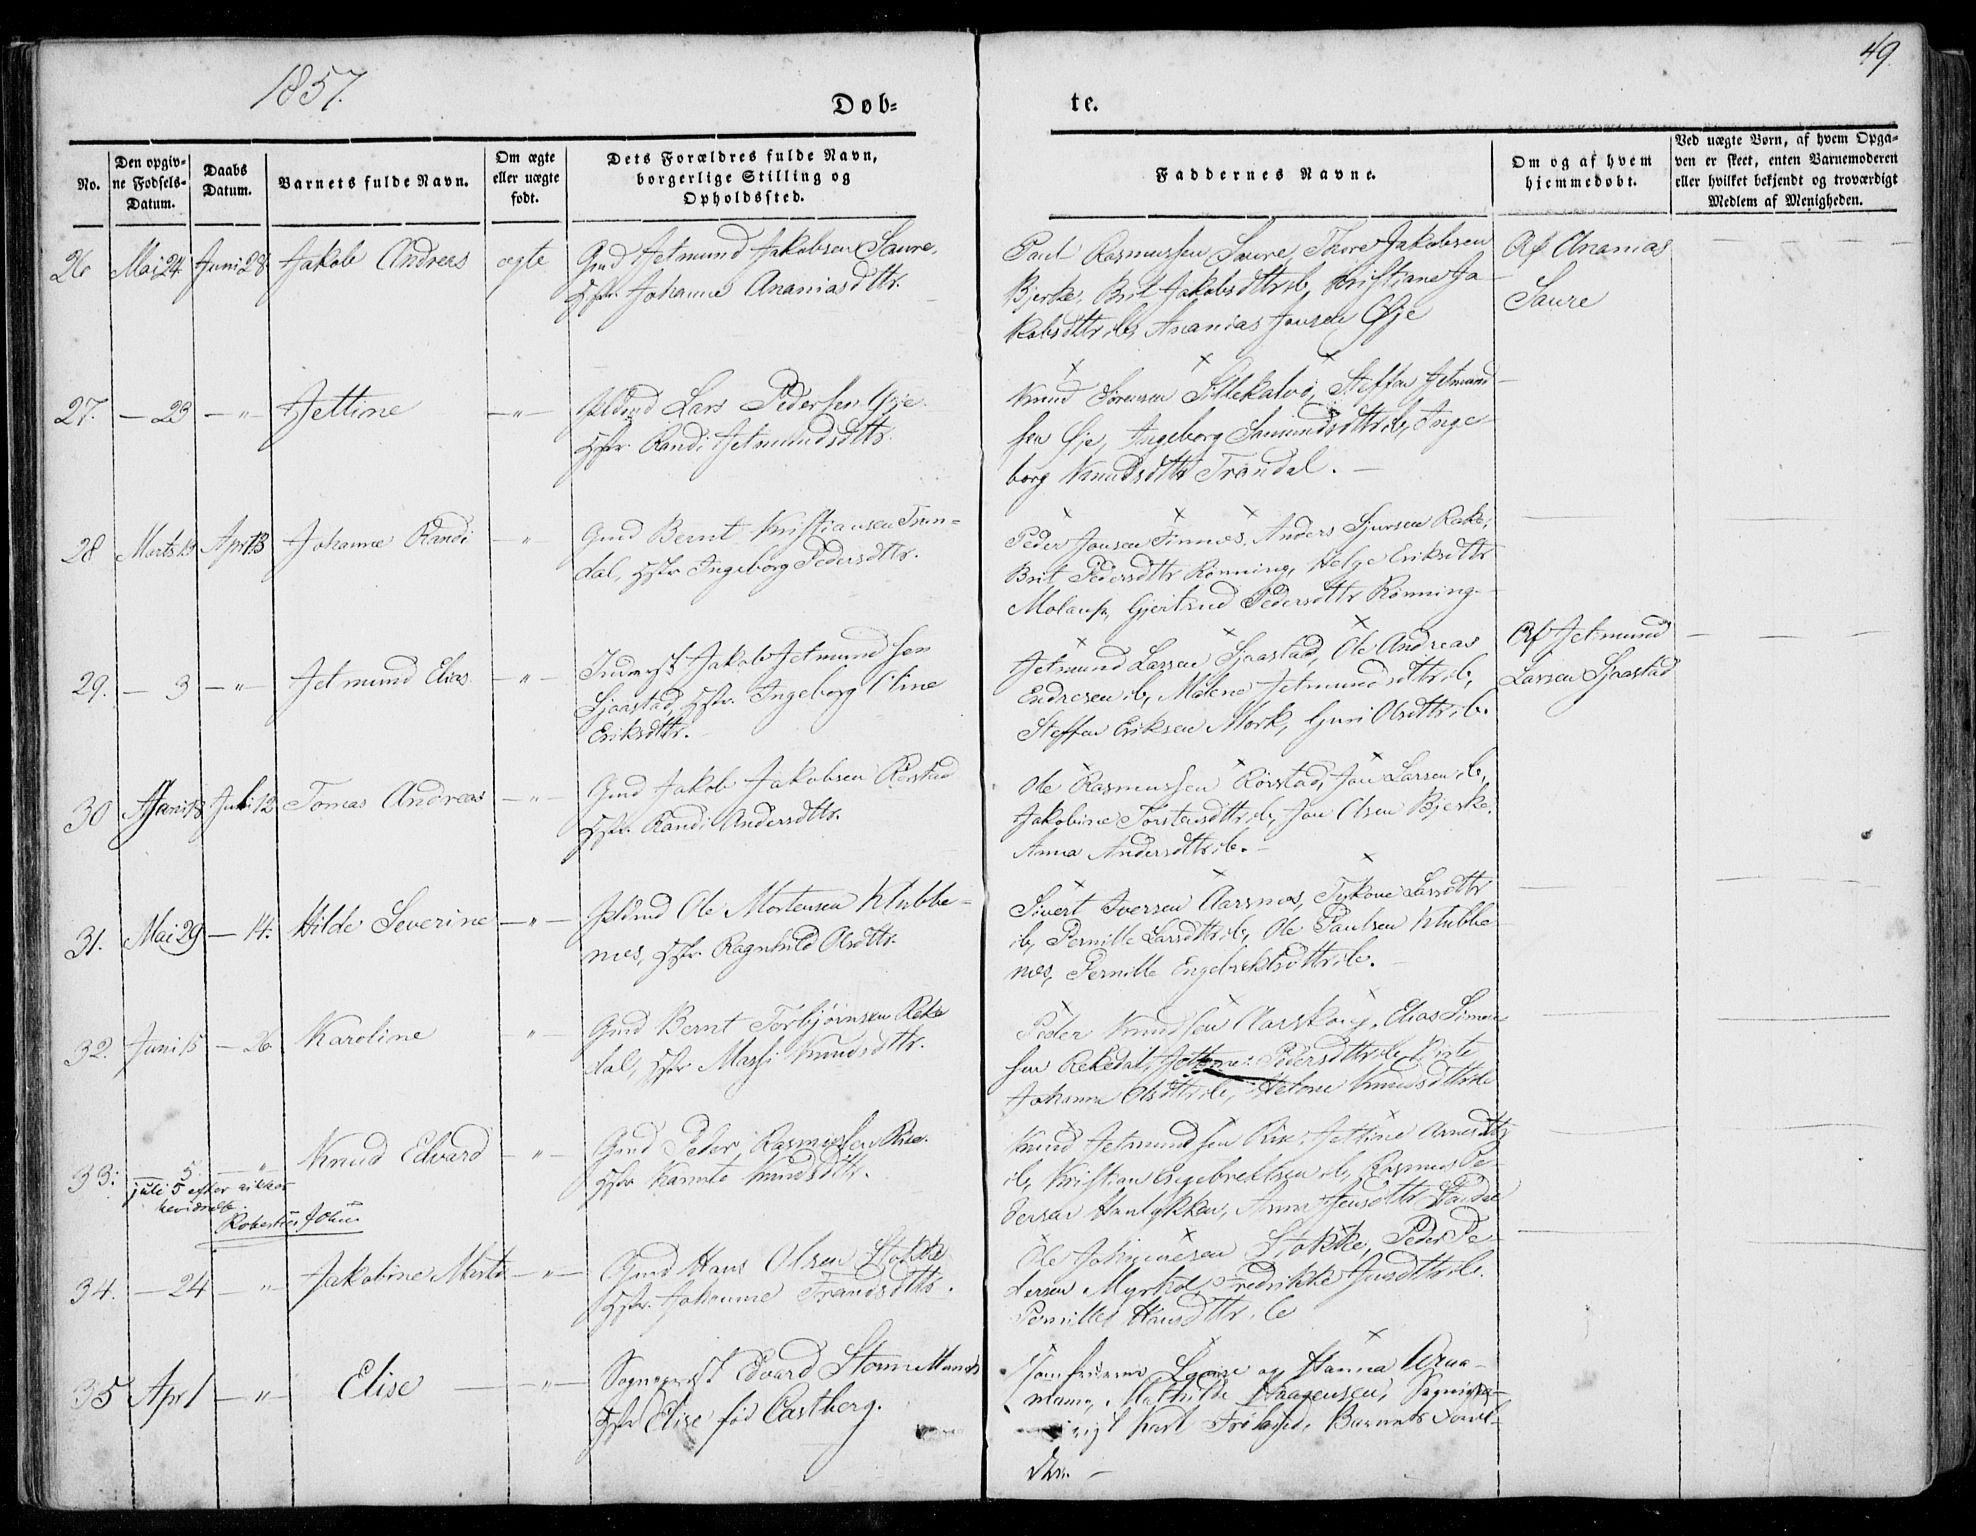 1857.
49.
Døb-
te.
No.
Den opgiv-
ne Fødsels-
Datum.
Daabs
Datum.
Barnets fulde Navn.
Om ægte
eller uægte
født.
Dets Forældres fulde Navn,
borgerlige Stilling og
Opholdssted.
Faddernes Navne.
Om og af hvem
hjemmedøbt.
Ved uægte Børn, af hvem Opga-
ven er skeet, enten Barnemoderen
eller hvilket bekjendt og troværdigt
Medlem af Menigheden.
26 Mai 24 Juni 28 Jakob Andreas ægte
Gmd Jetmund Jakobsen Saure,
Hstr. Johanne Ananiasdttr.
Paul Rasmussen Saure, Thore Jakobsen
Bjerke, Brit Jakobsdttr ib, Kristiane Ja-
kobsdttr ib, Ananias Jonsen Øje
Af Ananias
Saure
27. — 23 — „ Jettine — „ —
Lars Pedersen Øje.
Hstr Randi Jetmundsdttr.
Knud Sørensen Sillekalvø, Steffen Jetmund-
sen Øje, Ingeborg Samundsdttr ib, Inge-
borg Knudsdttr Trandal. —
28 Marts 13 April 13 Johanne Randi — „
Gmd Bernt Kristiansen Tran-
dal, Hstr Ingeborg Pedersdttr.
Peder Jonsen Finnes, Anders Sjursen Rake,
Brit Pedersdttr Rønning, Helge Eriksdttr
Molaup, Gjertrud Pedersdttr Rønning.
29. — 3 — „ Jetmund Elias — „ —
Jakob Jetmundsen
Sjaastad, Hstr. Ingeborg Oline
Eriksdttr.
Jetmund Larsen Sjaastad, Ole Andreas
Endresen ib, Malene Jetmundsdttr ib,
Steffen Eriksen Mork, Guri Olsdttr ib.
Af Jetmund
Larsen Sjaastad
30 Juni 18 Juli 12 Tomas Andreas — „ —
Gmd Jakob Jakobsen Rørstad
Hstr. Randi Andersdttr.
Ole Rasmussen Rørstad, Jon Larsen ib,
Jakobine Torstensdttr ib, Jon Olsen Bjerke,
Anna Andersdttr ib. —
31. Mai 29 — 14. Hilde Severine — „ —
Ole Mortensen Klubbe-
nes, Hstr. Ragnhild Olsdttr.
Sivert Iversen Aarsnes, Larsdttr
ib, Pernille Larsdttr ib, Ole Paulsen Klubbe
nes, Pernille Engebrektsdttr ib. —
32. Juni 15 — 26 Karoline „
Gmd Bernt Torbjørnsen Reke
dal, Hstr Massi Knudsdttr.
Peder Knudsen Aarskog, Elias Simon
sen Rekedal, Pedersdttr ib,
Johanna Olsdttr ib, Knudsdttr ib
33. 5. — „ Knud Edvard — „ —
juli 5 efter
Robertus John
Gmd Peder Rasmussen Rise.
Hstr Karnte Knudsdttr.
Knud Jetmundsen Rise, Jettine Arnesdttr
ib, Kristian Engebrektsen ib, Rasmus Pe-
dersen, Anna Jensdttr
34. — 24 — „ Jakobine Marta — „ —
Gmd Hans Olsen Stokke
Hstr. Johanne Frandsdttr.
Ole Johannesen Stokke, Peder Pe-
dersen Myrhol, Fredrikke Jensdttr ib.
Pernille Hansdttr ib
35 Apr 1 — „ — Elise — „ —
Sogneprest Edvard Storm Munch
Hstr Elise fød Castberg.
Jomfruerne Laura og Hanna
Mathilde Haagensen,
Karl Barnets